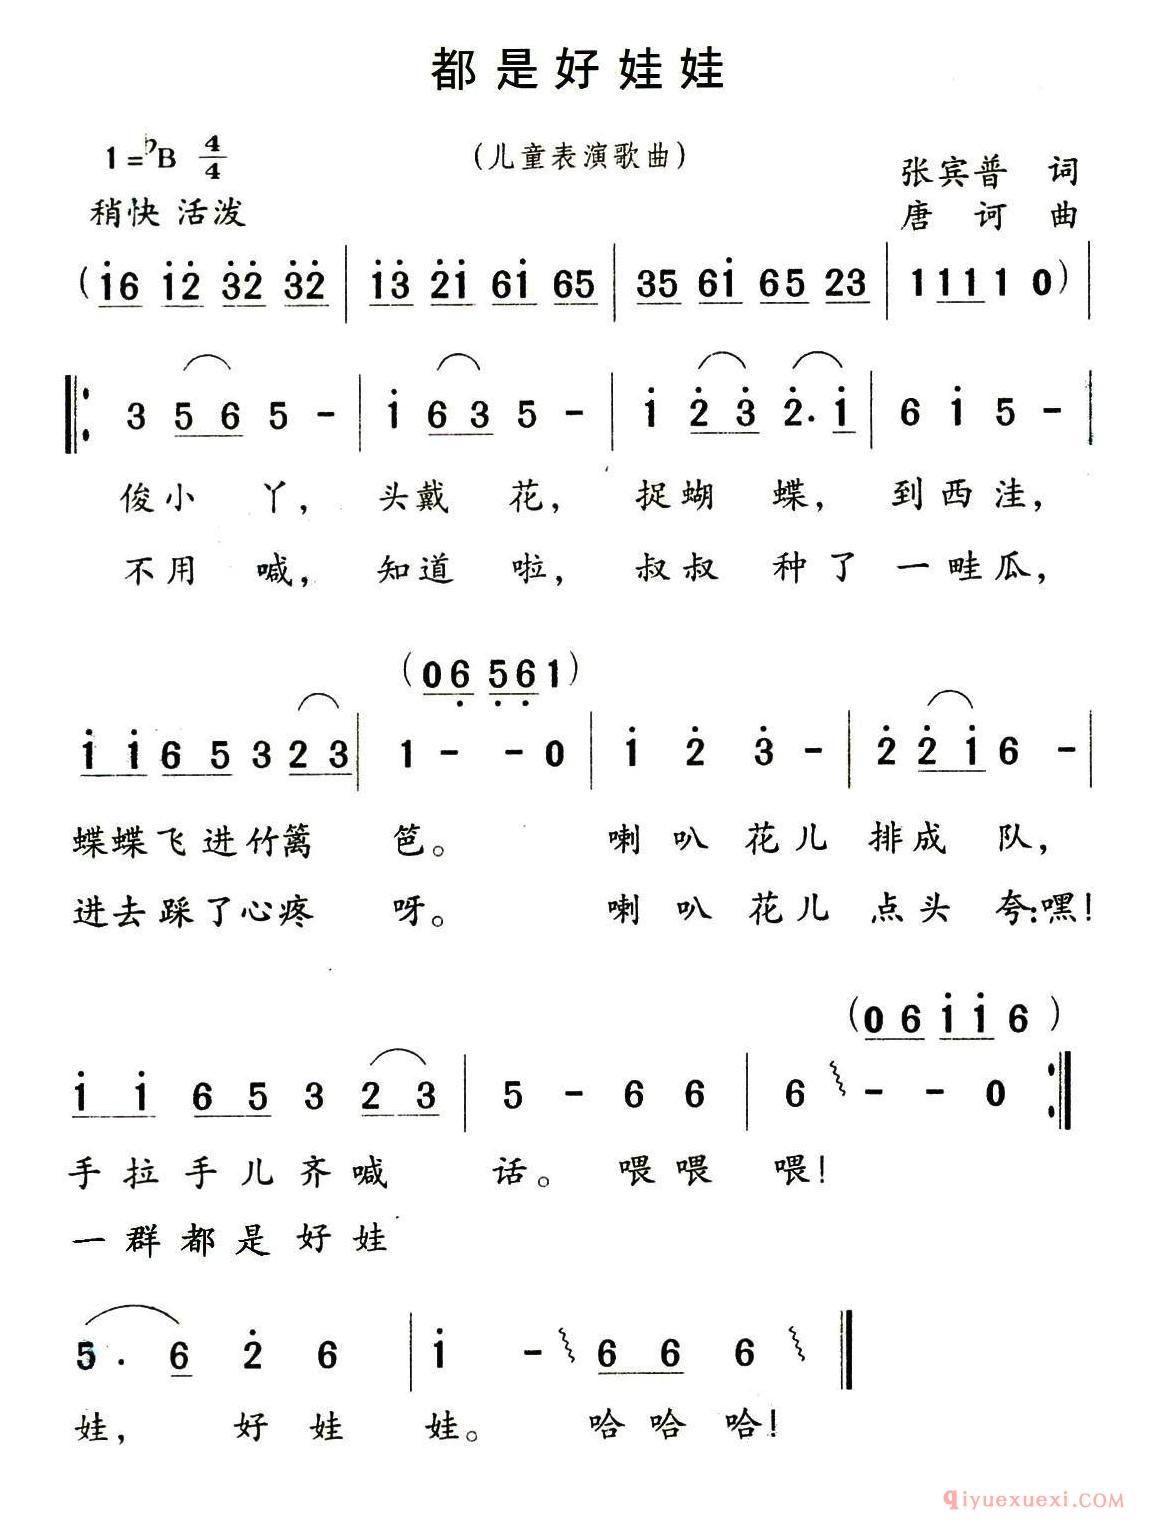 都是好娃娃
1=♭B 4/4
(儿童表演歌曲)
张宾普 词
稍快 活泼
唐诃 曲
(i6 i2 32 32 | i3 2i 6i 65 | 35 6i 65 23 | 1 11 1 0) |
3 5 6 5 - | i 6 3 5 - | i 2 3 2. i | 6 i 5 - |
俊小 丫, 头戴 花, 捉蝴 蝶, 到西洼,
不用 喊, 知道 啦, 叔叔 种了一畦瓜,
(06 56 1)
i i 6 5 3 2 3 | 1 - - 0 | i 2 3 - | 2 2 i 6 - |
蝶蝶飞进竹篱 笆。 喇叭花儿排成 队,
进去踩了心疼 呀。 喇叭花儿点头 夸:嘿!
(0 6 i i 6)
i i 6 5 3 2 3 | 5 - 6 6 | 6 - - 0 :|
手拉手儿齐喊 话。 喂喂 喂!
一群都是好娃
5. 6 2 6 | i - 6 6 6 ||
娃, 好娃 娃。 哈哈哈!
qiyuexuexi.COM